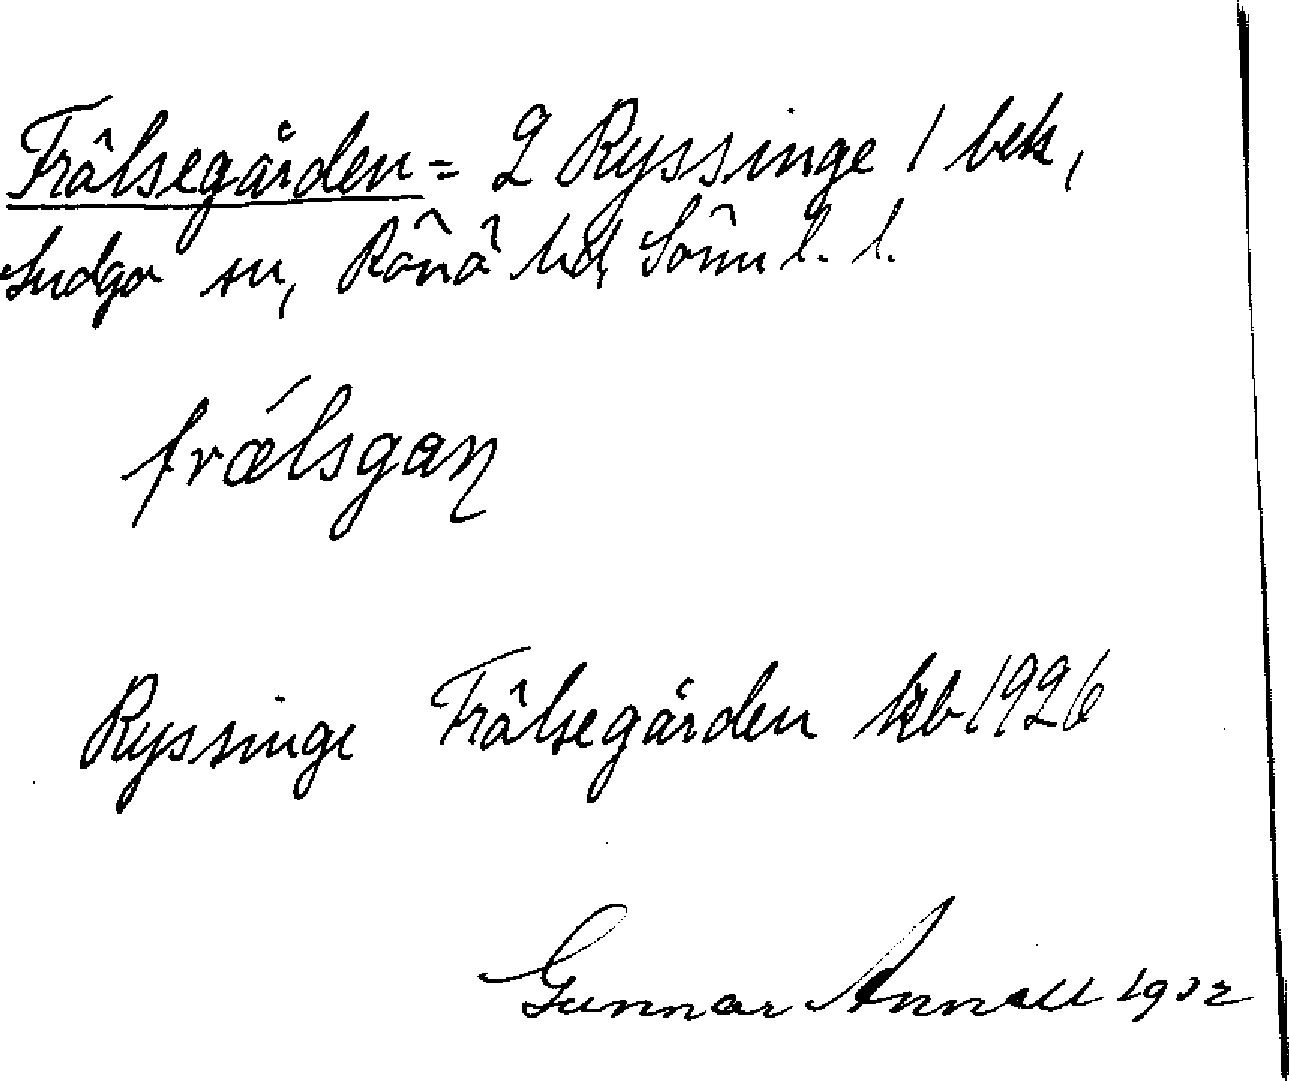 Frälsegården = 2 Ryssinge 1 bek,
Ludgo sn, Rönö hd, Sörml. l.
frælsgaɳ
Ryssinge Frälsegården kb. 1926
Gunnar Annell 1932